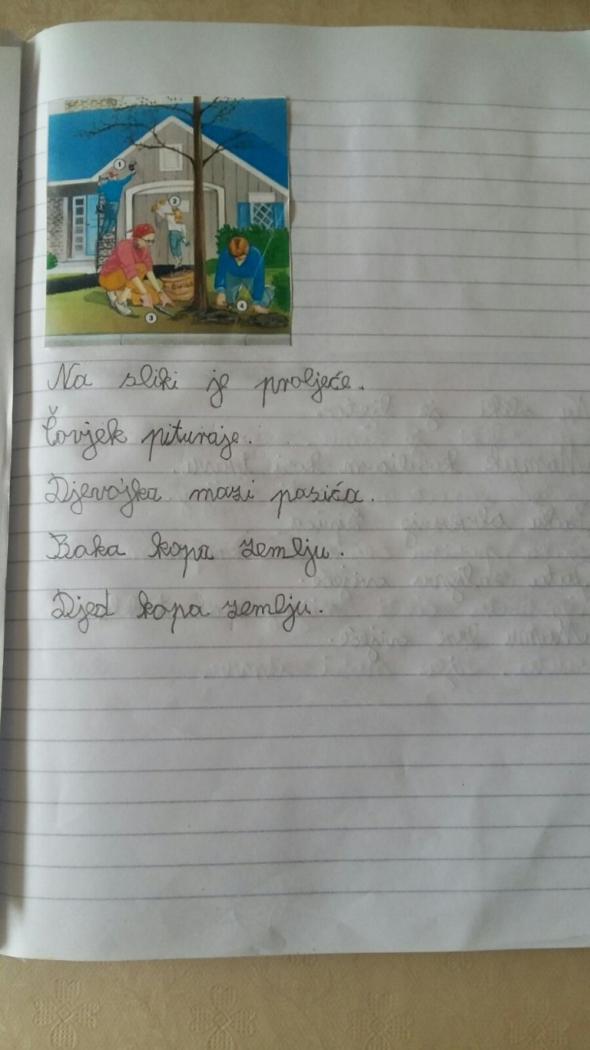 1
2
3
4
Na sliki je proljeće.
Čovjek pituraje.
Djevojka mazi pasića.
Baka kopa zemlju.
Djed kopa zemlju.